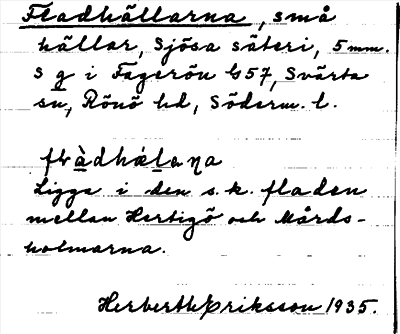 Fladhällarna, små
hällar, Sjösa säteri, 5 mm.
S g i Fagerön 457, Svärta
sn, Rönö hd, Söderm. l.
Ligga i den s.k. fladen
mellan Hertigö och Mårds-
holmarna.
Herbert Eriksson 1935.